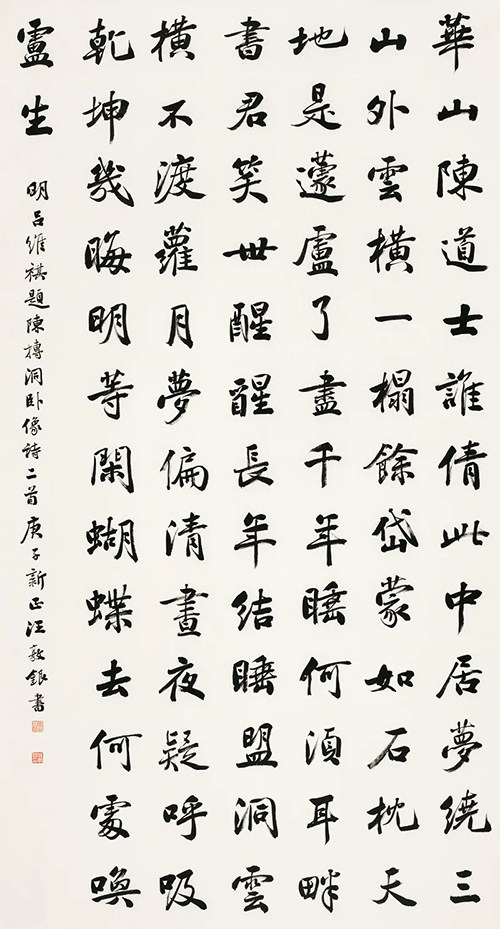 華山陳道士誰倩此中居夢繞三
山外雲橫一榻餘岱蒙如石枕天
地是蘧盧了盡千年睡何須耳畔
書君笑世醒醒長年結睡盟洞雲
橫不渡蘿月夢偏清晝夜疑呼吸
乾坤幾晦明等閑蝴蝶去何處喚
盧生
明呂維祺題陳摶洞臥像詩二首庚子新正汪敦銀書